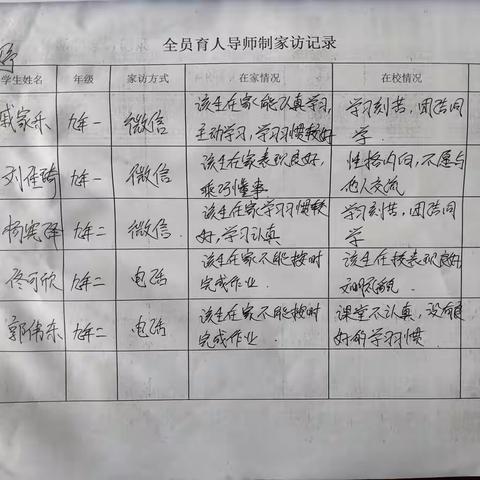 全员育人导师制家访记录
学生姓名 年级 家访方式 在家情况 在校情况
戚家乐 九年一 微信 该生在家能认真学习, 学习刻苦,团结同
主动学习,学习习惯较好 学.
刘佳琦 九年一 微信 该生在家表现良好, 性格内向,不愿与
乖巧懂事 他人交流
杨宪泽 九年二 微信. 该生在家学习习惯较 学习刻苦,团结同
好,学习认真 学
佟可欣 九年二 电话 该生在家不能按时 该生在校表现良好
完成作业. 文明礼貌.
郭伟东 九年二 电话 该生在家不能按时 课堂不认真,没有良
完成作业. 好的学习习惯.